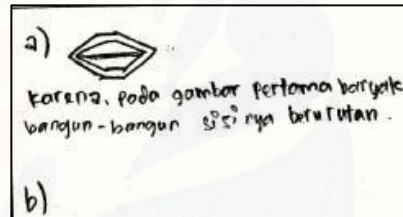 a)
karena, pada gambar pertama banyak
bangun-bangun sisi nya berurutan.
b)